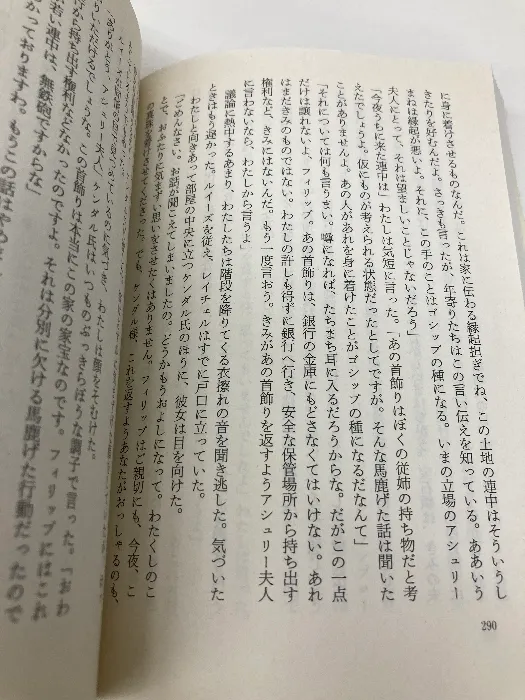 に身に着けさせるものなんだ。これは家に伝わる縁起担ぎでね、この土地の連中はそういうし
きたりを好むんだよ。さっきも言ったが、年寄りたちはこの言い伝えを知っている。ああいう
まねは縁起が悪いよ。それに、この手のことはゴシップの種になる。いまの立場のアシュリー
夫人にとって、それは望ましいことじゃないだろう」
「今夜うちに来た連中は」わたしは気短に言った。「あの首飾りはぼくの従姉の持ち物だと考
えたでしょうよ。仮にものが考えられる状態だったとしてですが。そんな馬鹿げた話は聞いた
ことがありませんよ。あの人があれを身に着けたことがゴシップの種になるだなんて」
「それについては何も言うまい。噂になれば、たちまち耳に入るだろうからな。だがこの一点
だけは譲れないよ、フィリップ。あの首飾りは、銀行の金庫にもどさなくてはいけない。あれ
はまだきみのものではない。わたしの許しも得ずに銀行へ行き、安全な保管場所から持ち出す
権利など、きみにはないんだ。もう一度言おう。きみがあの首飾りを返すようアシュリー夫人
に言わないなら、わたしから言うよ」
議論に熱中するあまり、わたしたちは階段を降りてくる衣擦れの音を聞き逃した。気づいた
ときはもう遅かった。ルイーズを従え、レイチェルはすでに戸口に立っていた。
わたしと向きあって部屋の中央に立つケンダル氏のほうに、彼女は目を向けた。
「ごめんなさい。お話が聞こえてしまいましたの。どうかもうおよしになって。わたくしのこ
とで、おふたりに気まずい思いをさせたくはありません。フィリップはご親切にも、今夜、こ
の真珠を着けさせてくださった。でも、ケンダル様、これを返すようあなたがおっしゃるのも、
わたしは顔をそむけた。
「ありがとう、アシュリー夫人」ケンダル氏はいつものぶっきらぼうな調子で言った。「おわ
かりいただけるでしょうな。この首飾りは本当にこの家の家宝なのです。フィリップにはこれ
から持ち出す権利などなかったのですよ。それは分別に欠ける馬鹿げた行動だったので
若い連中は、無鉄砲ですからな」
かっておりますわ。もうこの話はやめ
290